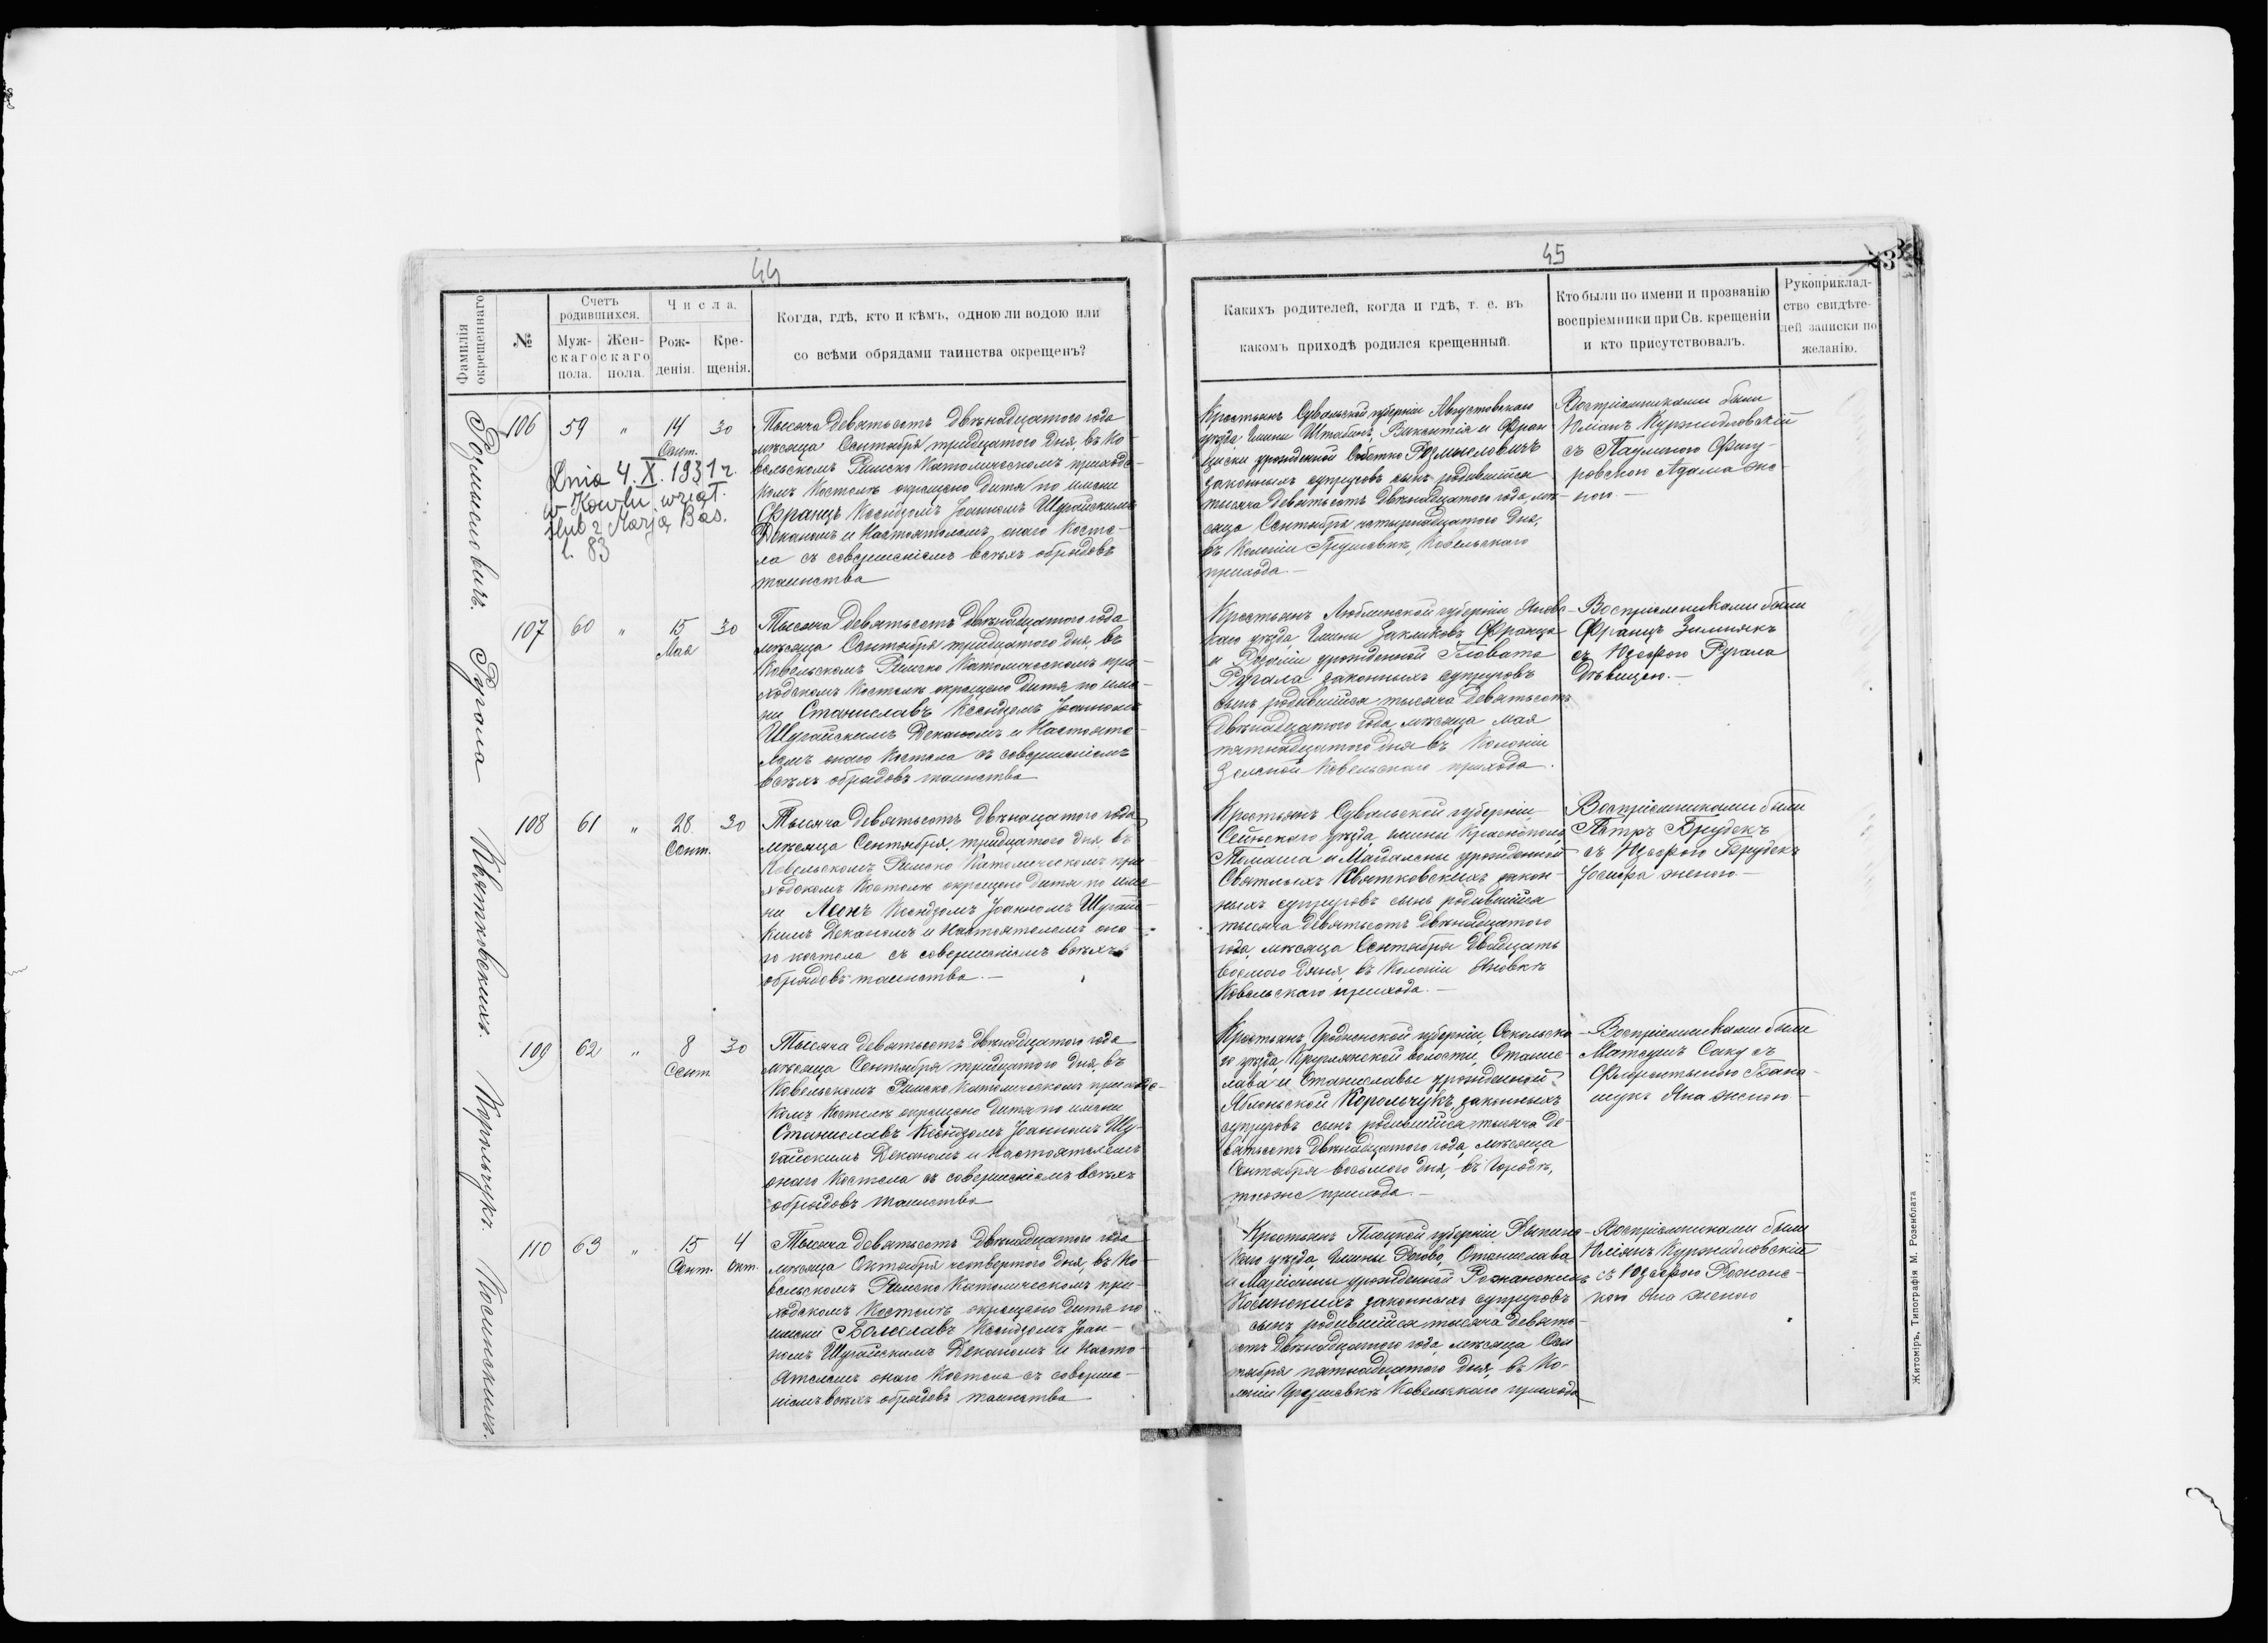 44
Фамилія
окрещеннаго
№
Счетъ
родившихся.
Муж-
скаго
пола.
Жен-
скаго
пола.
Числа.
Рож-
денія.
Кре-
щенія.
Когда, гдѣ, кто и кѣмъ, одною ли водою или
со всѣми обрядами таинства окрещенъ?
Розмысловичъ.
106 59 " 14 30
Сент.
Dnia 4.X.1931 r.
w Kowlu wziął
ślub z Marją Bas.
l. 83
Тысяча девятьсотъ двѣнадцатого года
мѣсяца Сентября тридцатого дня, въ Ко-
вельскомъ Римско Католическомъ приходс-
комъ Костелѣ окрещено дитя по имени
Францъ Ксендзомъ Іоанномъ Шугайскимъ
Деканомъ и Настоятелемъ онаго Косте-
ла съ совершеніемъ всѣхъ обрядовъ
таинства
Ругала
107 60 " 15 30
Мая
Тысяча девятьсотъ двѣнадцатого года
мѣсяца Сентября тридцатого дня, въ
Ковельскомъ Римско Католическомъ при-
ходскомъ Костелѣ окрещено дитя по име-
ни Станиславъ Ксендзомъ Іоанномъ
Шугайскимъ Деканомъ и Настояте-
лемъ онаго Костела съ совершеніемъ
всѣхъ обрядовъ таинства
Квятковскихъ.
108 61 " 28 30
Сент.
Тысяча девятьсотъ двѣнацатого года
мѣсяца Сентября, тридцатого дня, въ
Ковельскомъ Римско Католическомъ при-
ходскомъ Костелѣ окрещено дитя по име-
ни Ксендзомъ Іоанномъ Шугайс-
кимъ Деканомъ и Настоятелемъ она-
го костела съ совершеніемъ всѣхъ
обрядовъ таинства.—
Корольчукъ.
109 62 " 8 30
Сент.
Тысяча девятьсотъ двѣнадцатого года
мѣсяца Сентября тридцатого дня, въ
Ковельскомъ Римско Католическомъ приходс-
комъ Костелѣ окрещено дитя по имени
Станиславъ Ксендзомъ Іоанномъ Шу-
гайскимъ Деканомъ и Настоятелемъ
онаго Костела съ совершеніемъ всѣхъ
обрядовъ таинства
Косинскихъ.
110 63 " 15 4
Сент. Окт.
Тысяча девятьсотъ двѣнадцатого года
мѣсяца Октября четвертого дня, въ Ко-
вельскомъ Римско Католическомъ при-
ходскомъ Костелѣ окрещено дитя по
имени Болеславъ Ксендзомъ Іоан-
номъ Шугайскимъ Деканомъ и Насто-
ятелемъ онаго Костела съ соверше-
ніемъ всѣхъ обрядовъ таинства
45
Какихъ родителей, когда и гдѣ, т. е. въ
какомъ приходѣ родился крещенный.
Кто были по имени и прозванію
воспріемники при Св. крещеніи
и кто присутствовалъ.
Рукоприклад-
ство свидѣте-
лей записки по
желанію.
Крестьянъ Сувальской губерніи Августовскаго
уѣзда гмины Штабинъ, Викентія и Фран-
циски урожденной Розмысловичъ
законныхъ супруговъ сынъ родившійся
тысяча девятьсотъ двѣнадцатого года, мѣ-
сяца Сентября четырнадцатого дня,
въ Колоніи Грушевкѣ, Ковельскаго
прихода.—
Воспріемниками были
Юліанъ Куржидловскій
съ Паулиною Фигу-
ровскою Адама же-
ною.—
Крестьянъ Люблинской губерніи Яновс-
каго уѣзда, гмины Закликовъ, Франца
и Розаліи урожденной Гловата
Ругала законныхъ супруговъ
сынъ родившійся тысяча девятьсотъ
двѣнадцатого года, мѣсяца мая
пятнадцатого дня въ Колоніи
Зеленой Ковельскаго прихода.
Воспріемниками были
Францъ Зимнякъ
съ Юзефою Ругала
дѣвицею.—
Крестьянъ Сувальской губерніи
Сейнскаго уѣзда, гмины Краснополь,
Томаша и Магдалены урожденной
Квятковскихъ закон-
ныхъ супруговъ сынъ родившійся
тысяча девятьсотъ двѣнадцатого
года, мѣсяца Сентября двадцать
восмого дня, въ Колоніи Яновкѣ
Ковельскаго прихода.—
Воспріемниками были
Петръ Брудекъ
съ Юзефою Брудекъ
Іосифа женою—
Крестьянъ Гродненской губерніи, Сокольска-
го уѣзда, волости, Станис-
лава и Станиславы урожденной
Яблоньской Корольчукъ, законныхъ
супруговъ сынъ родившійся тысяча де-
вятьсотъ двѣнадцатого года, мѣсяца
Сентября восьмого дня, въ Городѣ,
тогоже прихода.—
Воспріемниками были
Матеушъ Саку съ
Флорентиною Бана-
шукъ Яна женою—
Крестьянъ Плоцкой губерніи Рыпинс-
каго уѣзда, гмины Рогово, Станислава
и Маріанны урожденной Рожанскихъ
Косинскихъ законныхъ супруговъ
сынъ родившійся тысяча девять-
сотъ двѣнадцатого года, мѣсяца Сен-
тября пятнадцатого дня, въ Ко-
лоніи Грушевкѣ Ковельскаго прихода
Воспріемниками были
Юліянъ Куржидловскій
съ Юзефою Рожанс-
кою Яна женою
Житомiръ, Типографія М. Розенблата